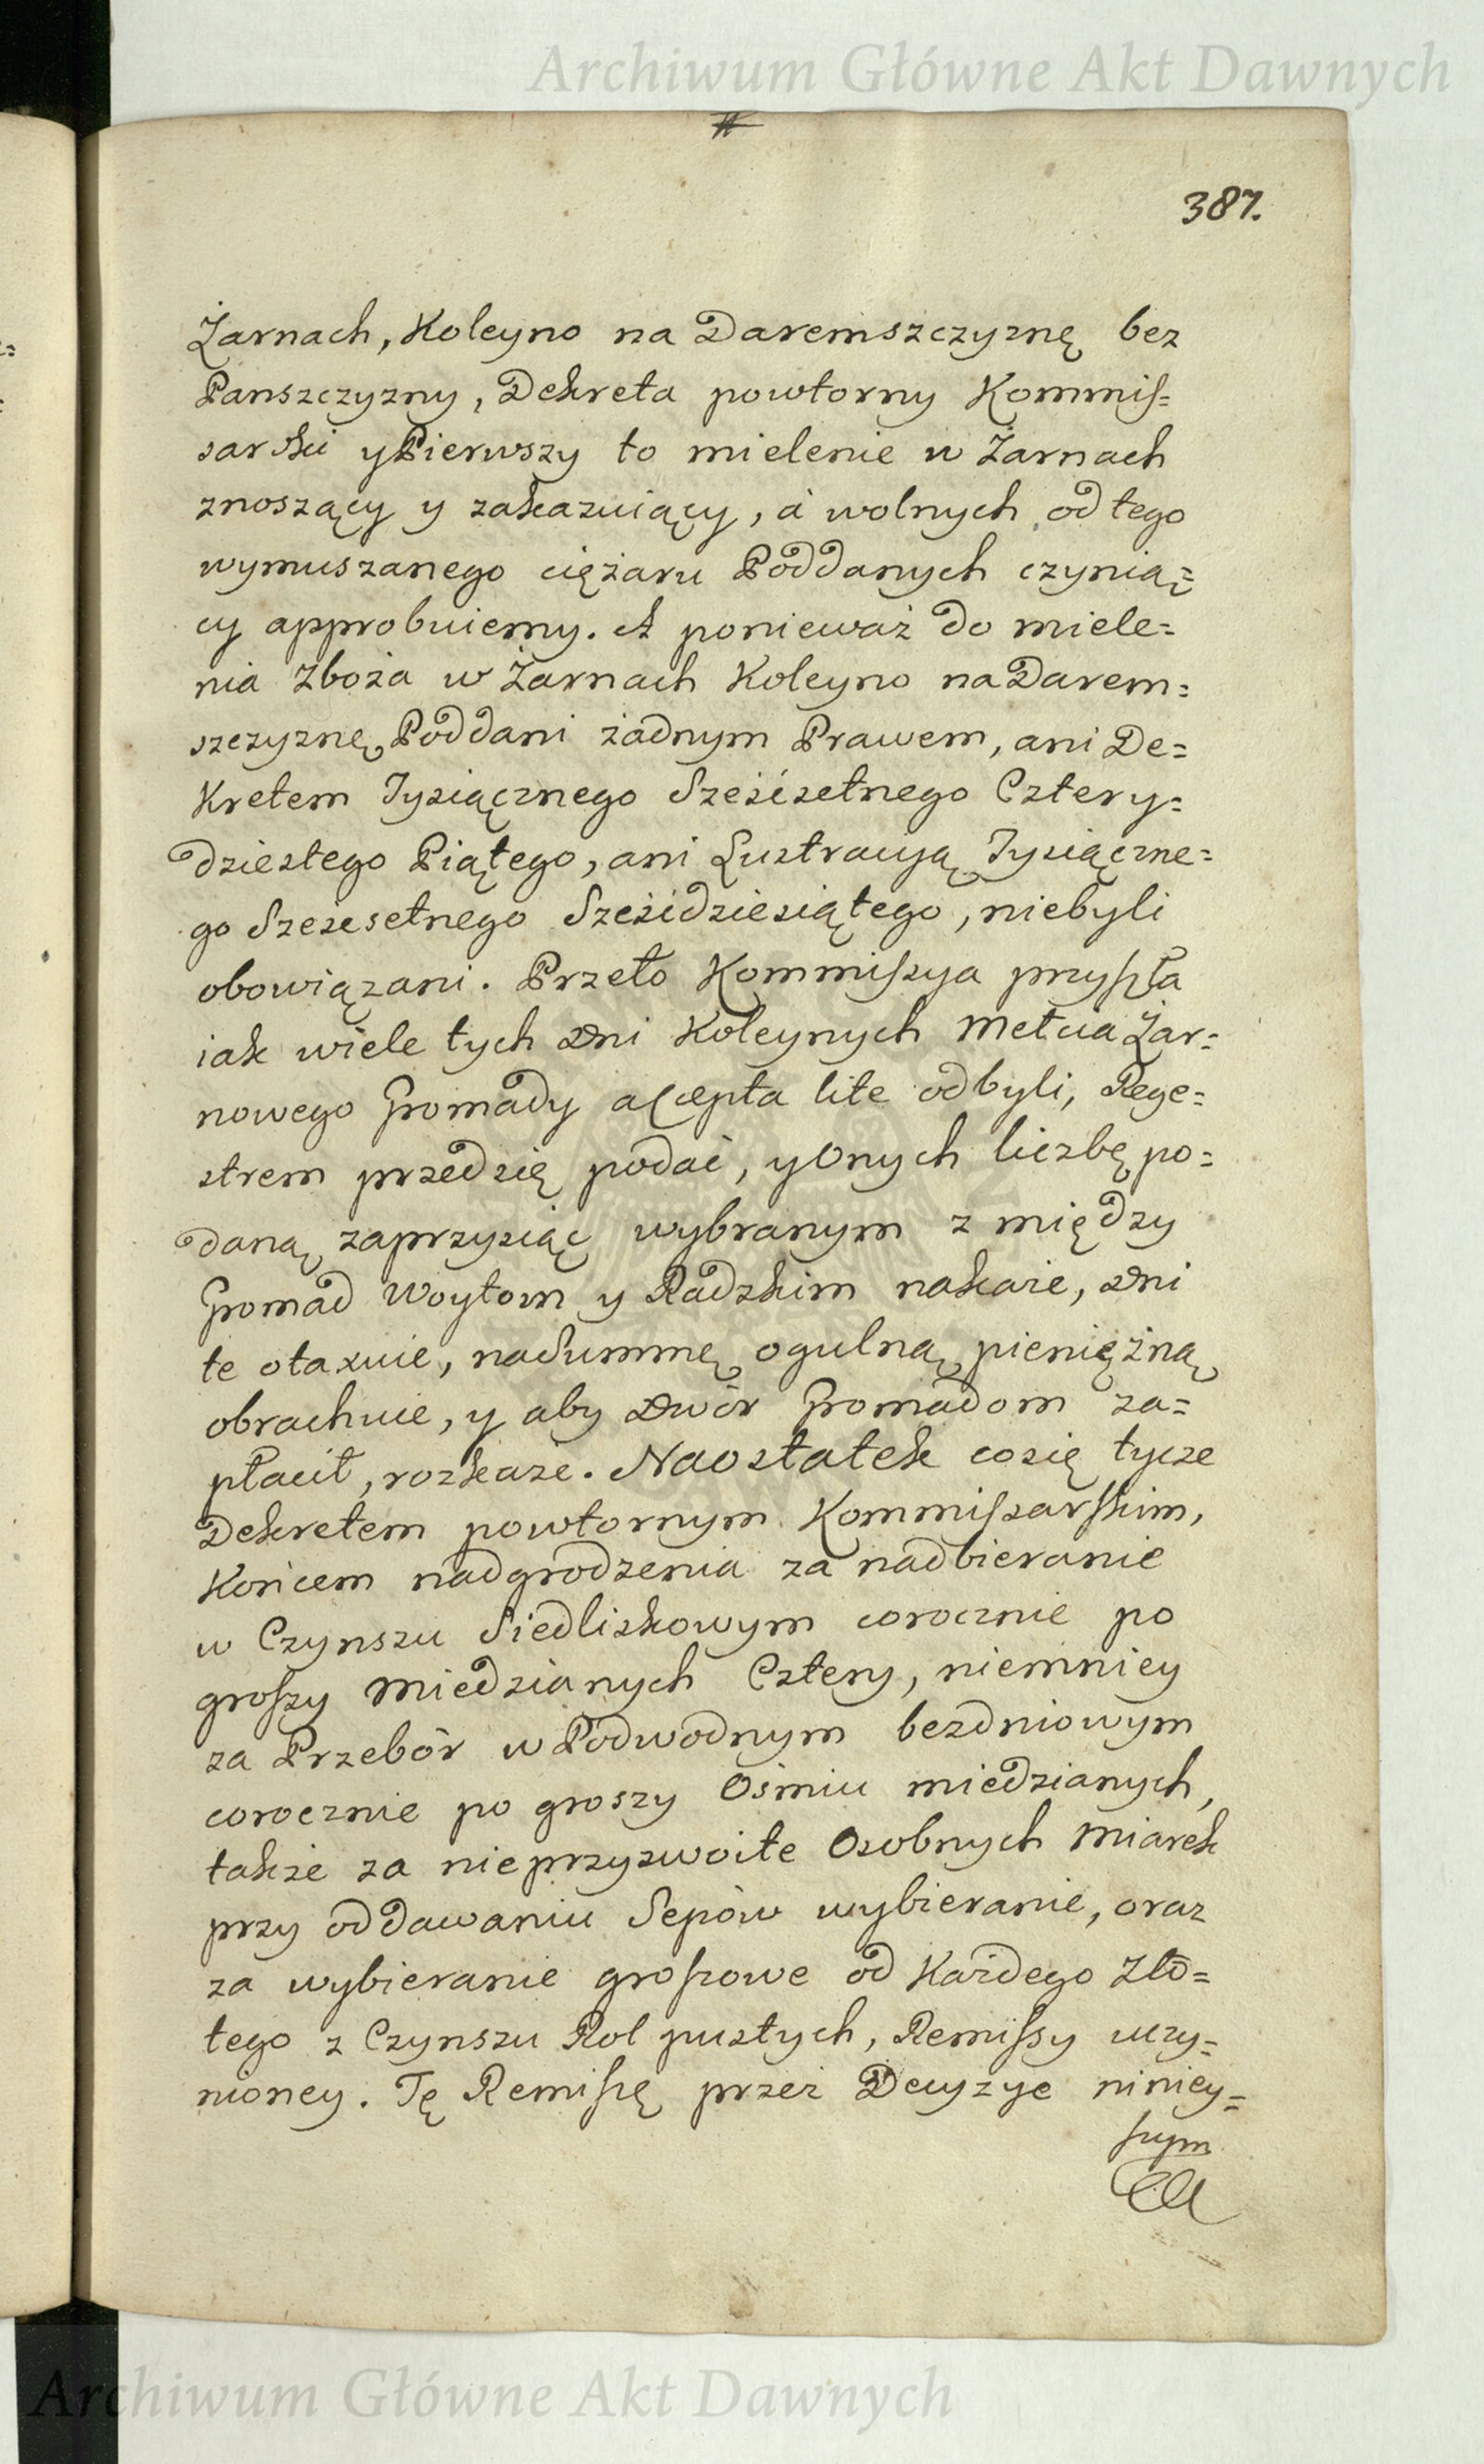 Archiwum Główne Akt Dawnych
387.
Żarnach, Koleyno na Daremszczyznę bez
Panszczyzny, Dekreta powtorny Kommis=
sarski y Pierwszy to mielenie w Żarnach
znoszący y zakazuiący, á wolnych od tego
wymuszanego ciężaru Poddanych czynią=
cy approbuiemy. A ponieważ do miele=
nia Zboża w Żarnach Koleyno na Darem=
szczyznę Poddani żadnym Prawem, ani De=
kretem Tysiącznego Sześćsetnego Cztery=
dziestego Piątego, ani Lustracyą Tysiączne=
go Sześćsetnego Sześćdziesiątego, niebyli
obowiązani. Przeto Kommissya przyszła
iak wiele tych Dni Koleynych Mełcia Żar=
nowego Gromady accepta lite odbyli, Rege=
strem przed się podać, y Onych liczbę po=
daną zaprzysiąc wybranym z między
Gromad Woytom y Radzkim nakaże, Dni
te otaxuie, na Summę ogulną pieniężną
obrachuie, y aby Dwór Gromadom za=
płacił, rozkaże. Naostatek co się tycze
Dekretem powtornym Kommissarskim,
Końcem nadgrodzenia za nadbieranie
w Czynszu Siedliskowym corocznie po
groszy Miedzianych Cztery, niemniey
za Przebór w Podwodnym bezdniowym
corocznie po groszy Ośmiu miedzianych,
także za nieprzyzwoite Osobnych Miarek
przy oddawaniu Sepów wybieranie, oraz
za wybieranie groszowe od Każdego Zło=
tego z Czynszu Rol pustych, Remissy uczy=
nioney. Tę Remissę przez Decyzye niniey=
szym
Archiwum Główne Akt Dawnych